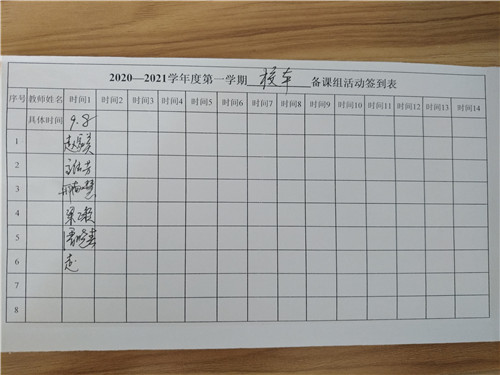 2020—2021学年度第一学期 校车 备课组活动签到表
序号 教师姓名 时间1 时间2 时间3 时间4 时间5 时间6 时间7 时间8 时间9 时间10 时间11 时间12 时间13 时间14
具体时间 9.8
1
2
3
4
5
6
7
8